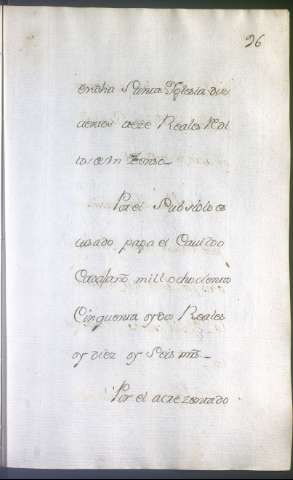 96
en dha Santa Iglesia dus
cientos треze Reales Vell
los en un Zenso
Por el Subsidio es
cusado paga el Cavildo
Cada año mill ochocientos
Cinquenta y dos Reales
y diez y Seis mrs
Por el acrezentado